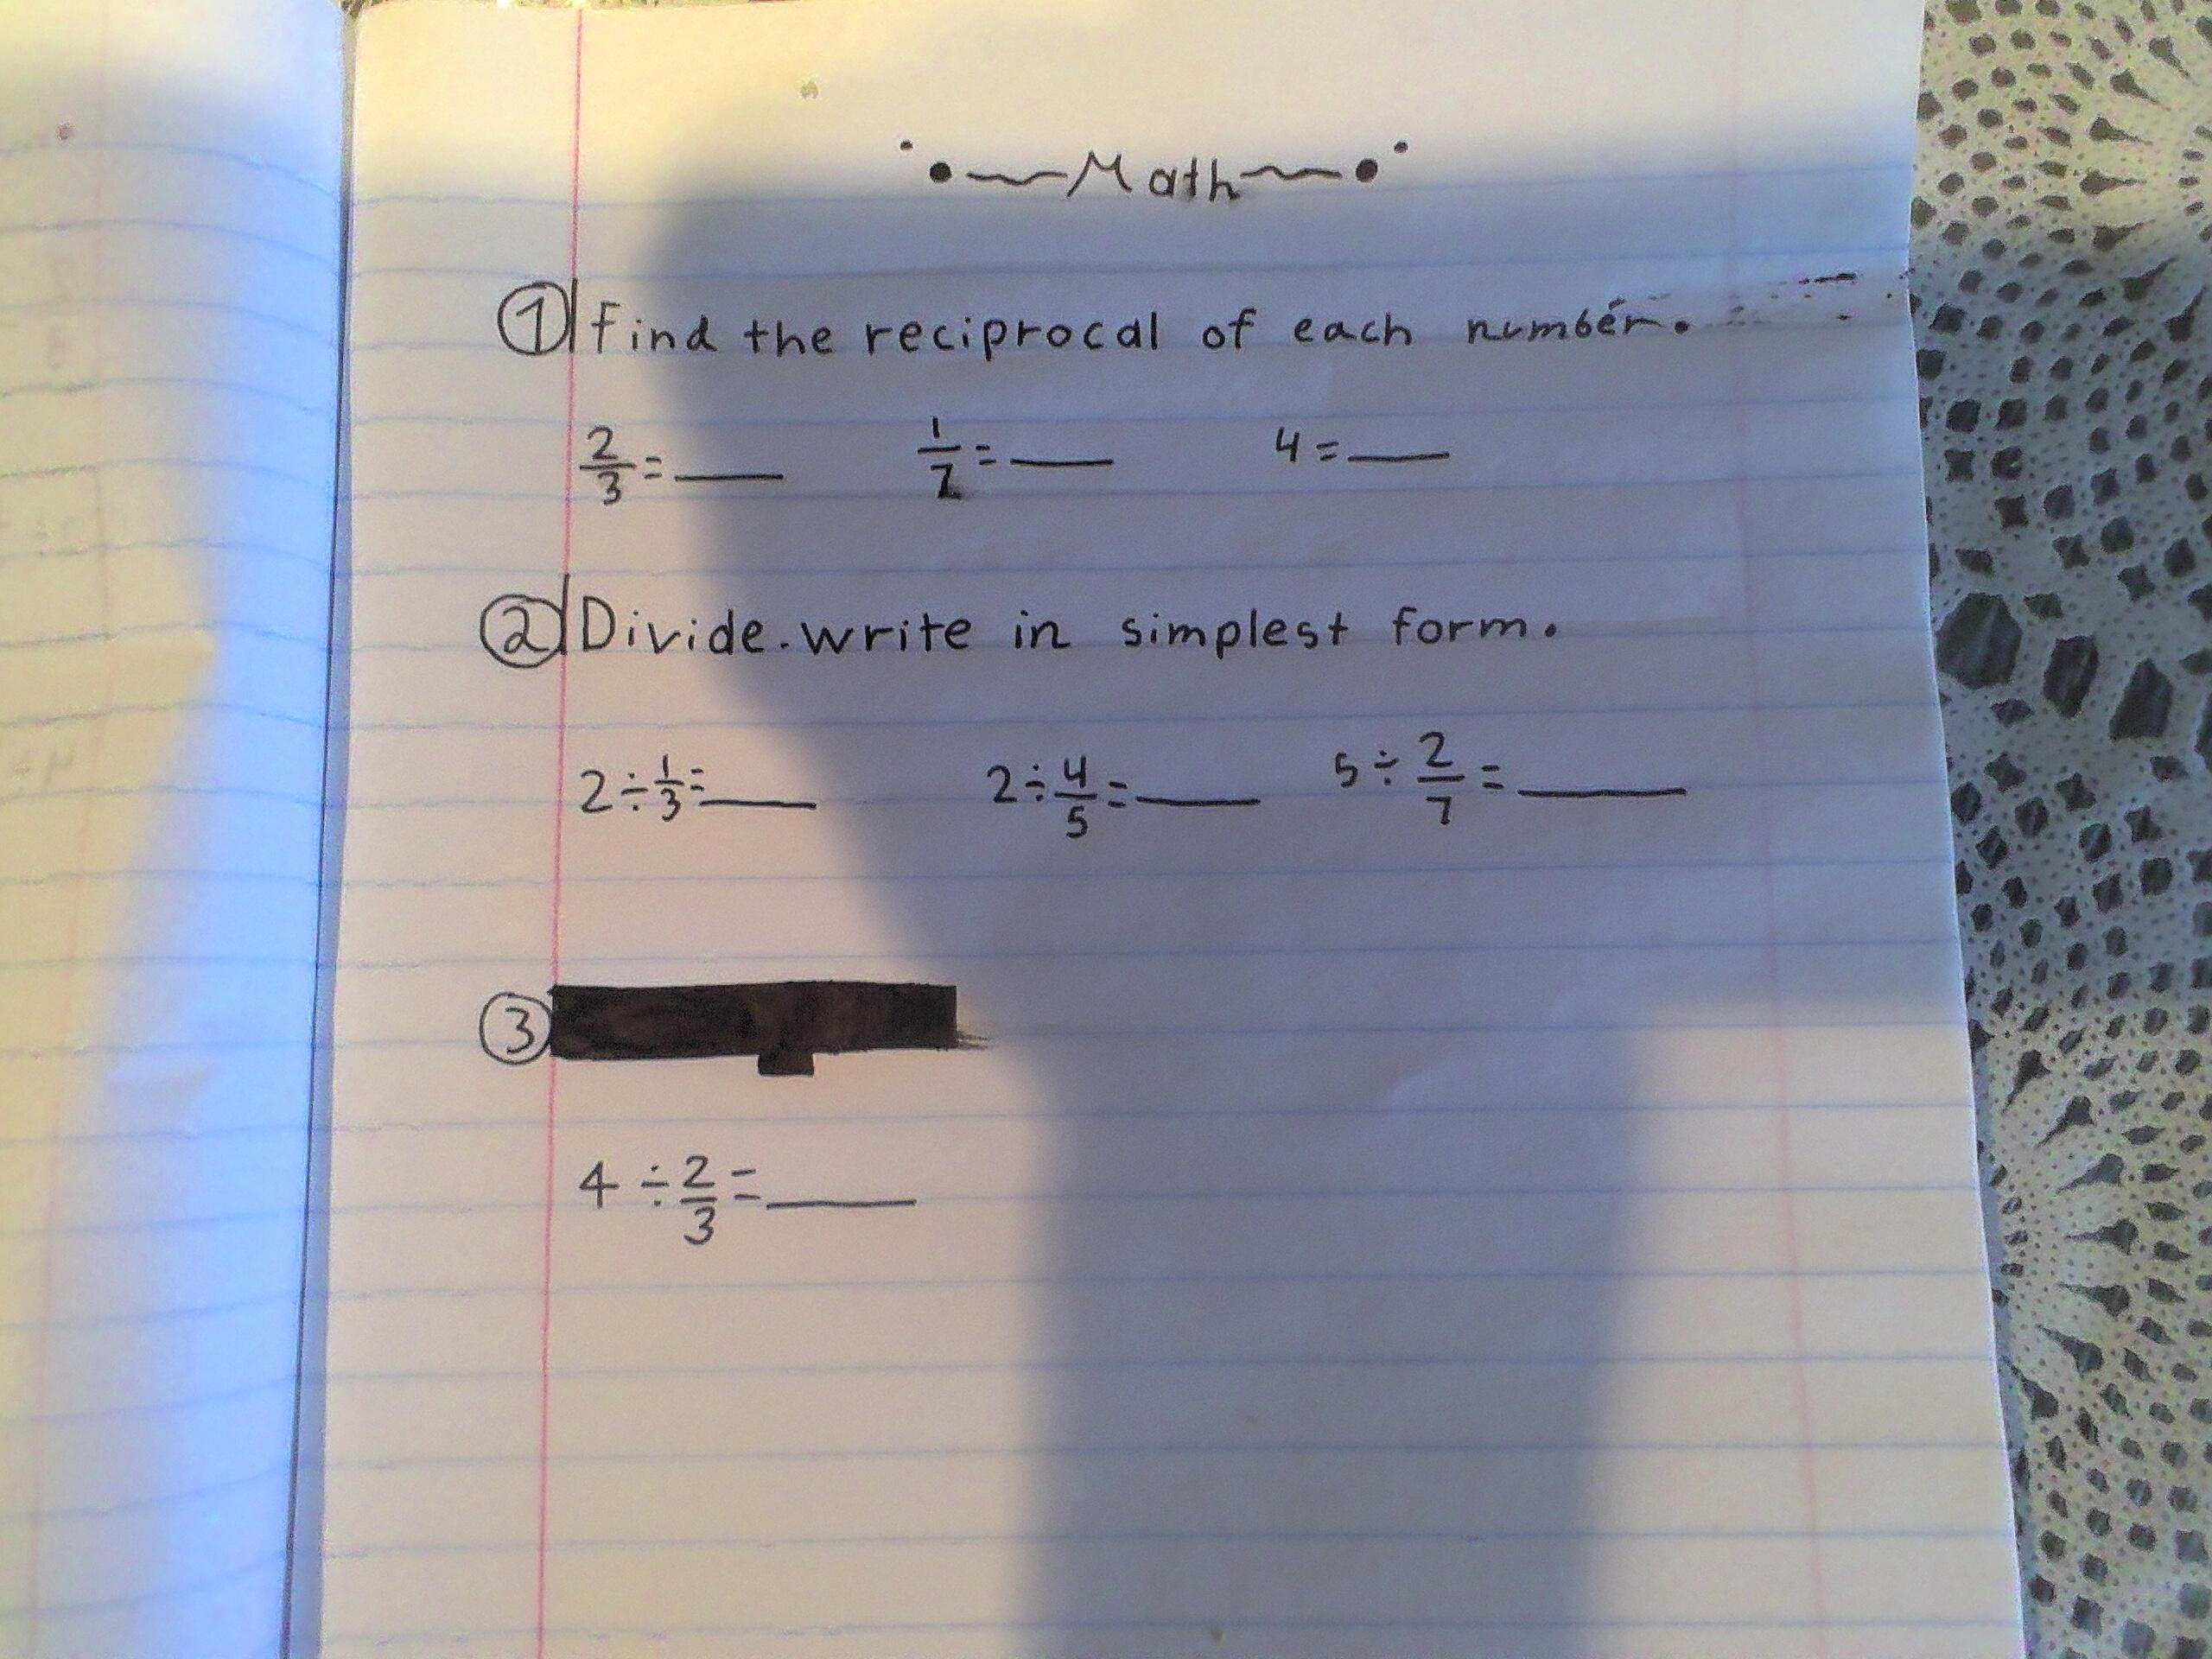 Math
① Find the reciprocal of each number.
2/3 = ___ 1/7 = ___ 4 = ___
② Divide. write in simplest form.
2 ÷ 1/3 = ___ 2 ÷ 4/5 = ___ 5 ÷ 2/7 = ___
③
4 ÷ 2/3 = ___